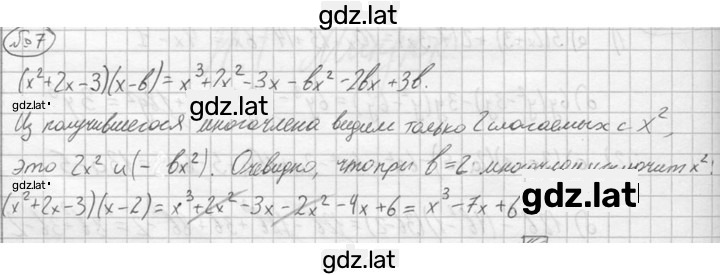 gdz.lat
№7
(x²+2x-3)(x-в)=x³+2x²-3x-вx²-2вx+3в.
gdz.lat
gdz.lat
gdz.lat
Из получившегося многочлена видим только 2 слагаемых с x²,
это 2x² и (-вx²). Очевидно, что при в=2 x²:
gdz.lat
(x²+2x-3)(x-2)=x³+2x²-3x-2x²-4x+6=x³-7x+6
gdz.lat
gdz.lat